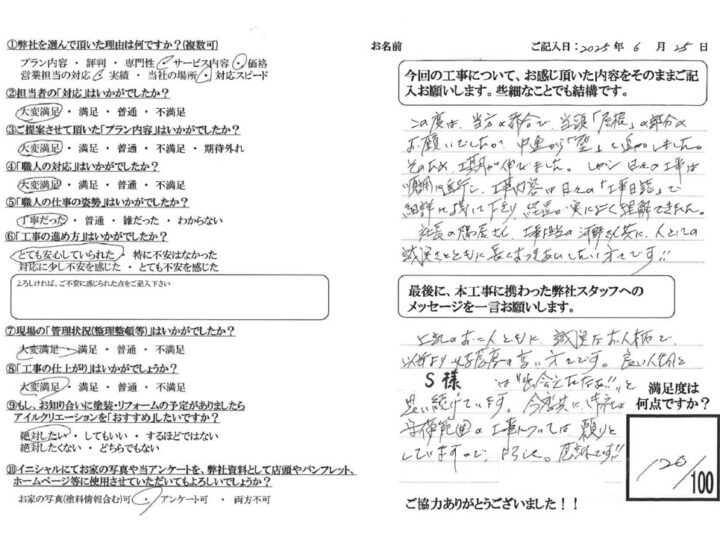 ①弊社を選んで頂いた理由は何ですか？(複数可)
プラン内容 ・ 評判 ・ 専門性 ・ サービス内容 ・ 価格
営業担当の対応 ・ 実績 ・ 当社の場所 ・ 対応スピード
②担当者の「対応」はいかがでしたか？
大変満足 ・ 満足 ・ 普通 ・ 不満足
③ご提案させて頂いた「プラン内容」はいかがでしたか？
大変満足 ・ 満足 ・ 普通 ・ 不満足 ・ 期待外れ
④「職人の対応」はいかがでしたか？
大変満足 ・ 満足 ・ 普通 ・ 不満足
⑤「職人の仕事の姿勢」はいかがでしたか？
丁寧だった ・ 普通 ・ 雑だった ・ わからない
⑥「工事の進め方」はいかがでしたか？
とても安心していられた ・ 特に不安はなかった
対応に少し不安を感じた ・ とても不安を感じた
よろしければ、ご不安に感じられた点をご記入下さい
⑦現場の「管理状況(整理整頓等)」はいかがでしたか？
大変満足 ・ 満足 ・ 普通 ・ 不満足
⑧「工事の仕上がり」はいかがでしょうか？
大変満足 ・ 満足 ・ 普通 ・ 不満足
⑨もし、お知り合いに塗装・リフォームの予定がありましたら
アイルクリエーションを「おすすめ」したいですか？
絶対したい ・ してもいい ・ するほどではない
絶対したくない ・ どちらでもない
⑩イニシャルにてお家の写真や当アンケートを、弊社資料として店頭やパンフレット、
ホームページ等に使用させていただいてもよろしいでしょうか？
お家の写真(塗料情報含む)可 ・ アンケート可 ・ 両方不可
お名前 ご記入日：2025年 6 月 25 日
今回の工事について、お感じ頂いた内容をそのままご記
入お願いします。些細なことでも結構です。
この度は、当方の都合で、当頭「屋根」の部分の
お願いでしたが、中途から「壁」も追加しました。
そのため工期が伸びました。しかし日々の工事は
順調に進行し、工事内容は日々の「工事日誌」で
細詳に残して下さり
実によく理解できました。
社長の
さん、工事担当の河野さん共に、人としての
誠実さとともに長くおつきあいしたい方です!!
最後に、本工事に携わった弊社スタッフへの
メッセージを一言お願いします。
上記のお二人ともに、誠実なお人柄で、
方です。良い人物と
S 様
は"出会えたなぁ!!"と
思い続けています。今後共に、
守備範囲の工事については頼りと
していますので、よろしく。
満足度は
何点ですか？
120/100
ご協力ありがとうございました！！